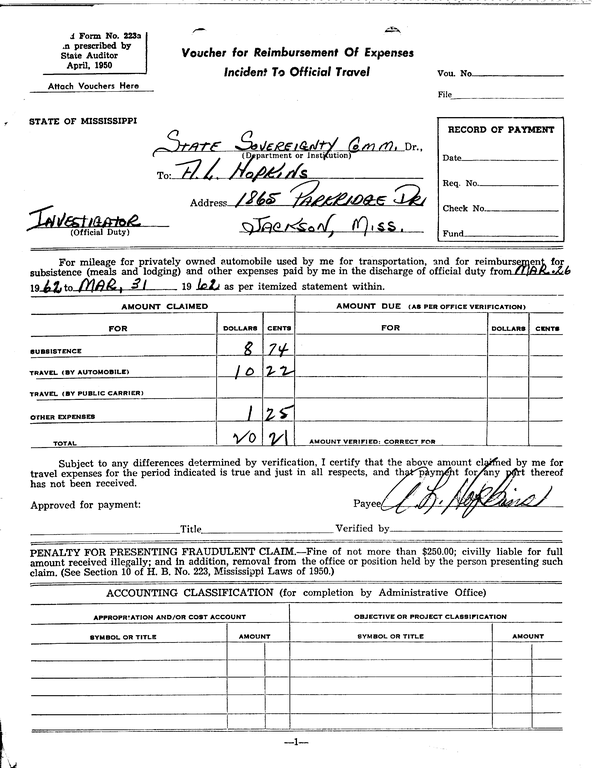 d Form No. 223a
n prescribed by
State Auditor
April, 1950
Attach Vouchers Here
Voucher for Reimbursement Of Expenses
Incident To Official Travel
Vou. No.
File
STATE OF MISSISSIPPI
STATE SOVEREIGNTY COMM. Dr.,
(Department or Institution)
To: A.L. HOPKINS
Address 1865 PARKRIDGE DR
JACKSON, MISS.
INVESTIGATOR
(Official Duty)
RECORD OF PAYMENT
Date
Req. No.
Check No.
Fund
For mileage for privately owned automobile used by me for transportation, and for reimbursement for
subsistence (meals and lodging) and other expenses paid by me in the discharge of official duty from MAR. 26
1962 to MAR, 31 1962 as per itemized statement within.
AMOUNT CLAIMED AMOUNT DUE (AS PER OFFICE VERIFICATION)
FOR DOLLARS CENTS FOR DOLLARS CENTS
SUBSISTENCE 8 74
TRAVEL (BY AUTOMOBILE) 10 22
TRAVEL (BY PUBLIC CARRIER)
OTHER EXPENSES 1 25
TOTAL 20 21 AMOUNT VERIFIED: CORRECT FOR
Subject to any differences determined by verification, I certify that the above amount claimed by me for
travel expenses for the period indicated is true and just in all respects, and that payment for any part thereof
has not been received.
Approved for payment: Payee A L Hopkins
Title Verified by
PENALTY FOR PRESENTING FRAUDULENT CLAIM.—Fine of not more than $250.00; civilly liable for full
amount received illegally; and in addition, removal from the office or position held by the person presenting such
claim. (See Section 10 of H. B. No. 223, Mississippi Laws of 1950.)
ACCOUNTING CLASSIFICATION (for completion by Administrative Office)
APPROPRIATION AND/OR COST ACCOUNT OBJECTIVE OR PROJECT CLASSIFICATION
SYMBOL OR TITLE AMOUNT SYMBOL OR TITLE AMOUNT
—1—